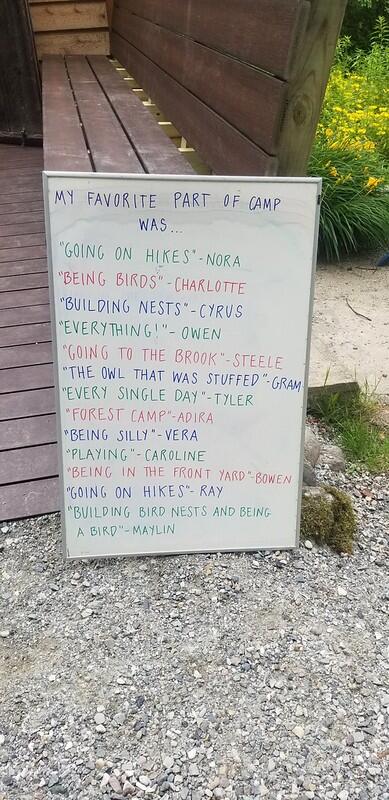 MY FAVORITE PART OF CAMP
WAS...
"GOING ON HIKES"-NORA
"BEING BIRDS"-CHARLOTTE
"BUILDING NESTS"-CYRUS
"EVERYTHING!"- OWEN
"GOING TO THE BROOK"-STEELE
"THE OWL THAT WAS STUFFED"-GRAM
"EVERY SINGLE DAY"-TYLER
"FOREST CAMP"-ADIRA
"BEING SILLY"-VERA
"PLAYING"- CAROLINE
"BEING IN THE FRONT YARD"-BOWEN
"GOING ON HIKES"- RAY
"BUILDING BIRD NESTS AND BEING
A BIRD"-MAYLIN